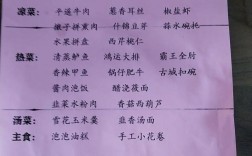 凉菜: 平遥牛肉 葱香耳丝 椒盐虾
馓子拼熏肉 什锦豆芽 蒜水碗托
水果拼盘 西芹桃仁
热菜: 清蒸鲈鱼 鸿运大排 霸王全肘
香辣甲鱼 锅仔肥牛 古城扣碗
酱肉泡饭 醋浇莜面
韭菜水粉肉 香菇西葫芦
汤菜: 雪花玉米羹 韭香汤面
主食: 泡泡油糕 手工小花卷